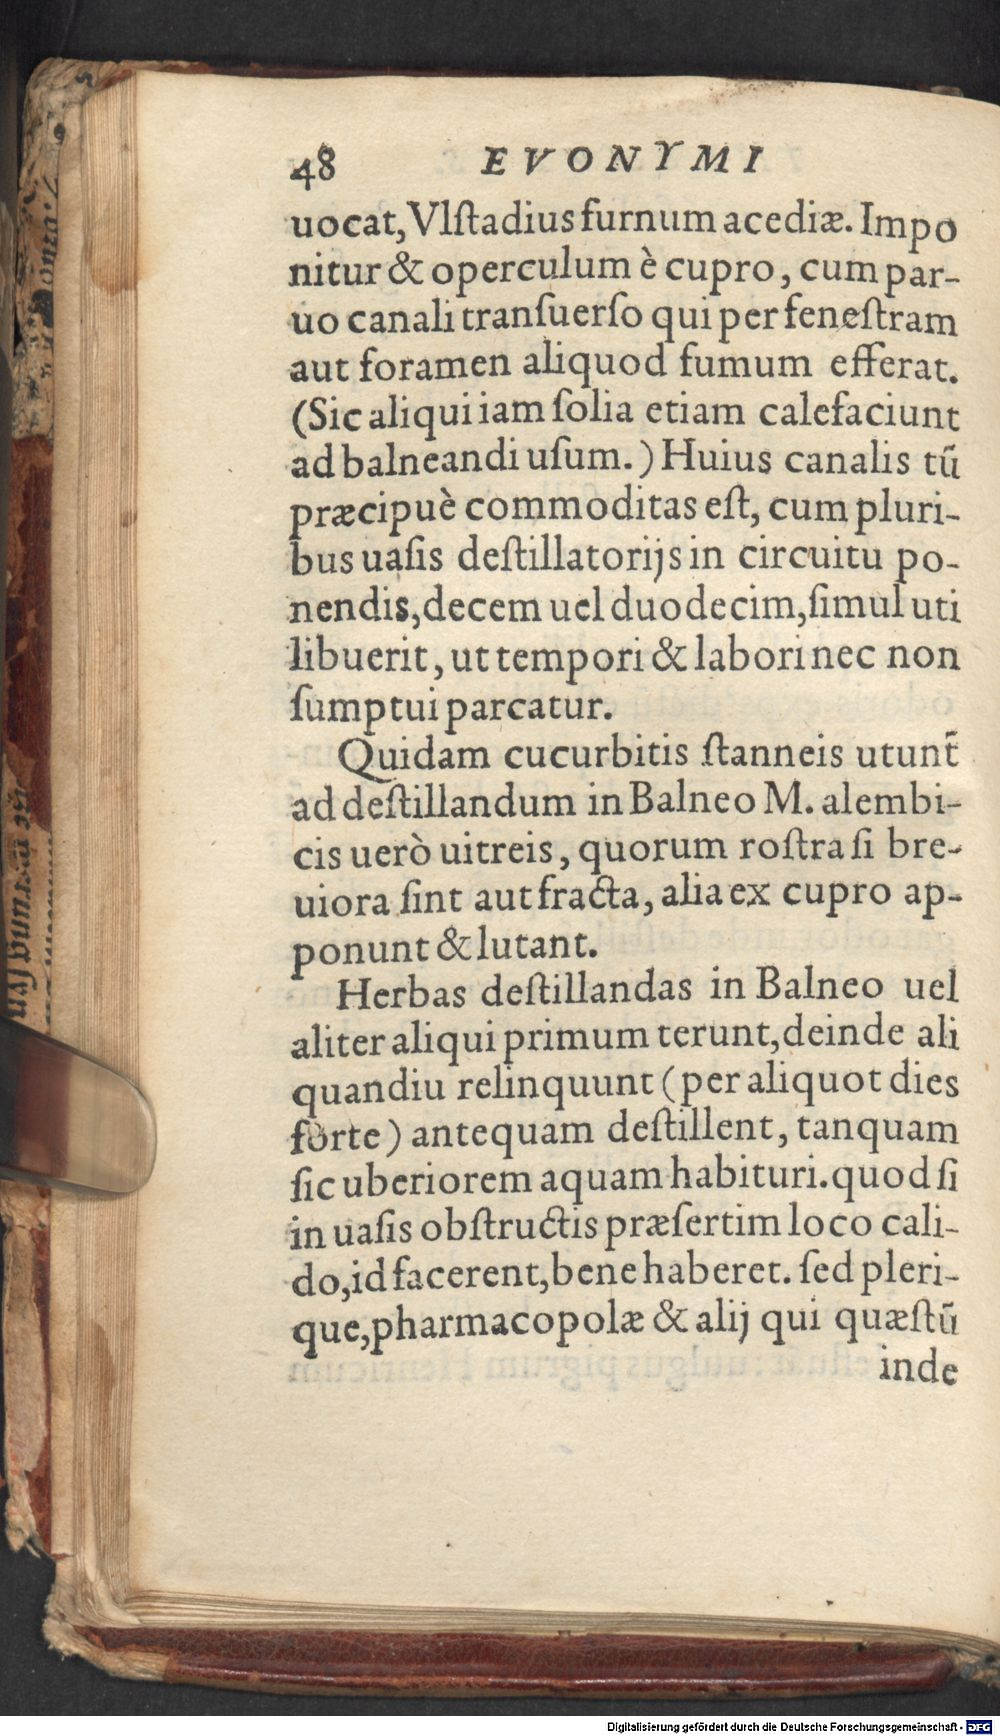 48 EVONYMI
uocat, Vlſtadius furnum acediæ. Impo
nitur & operculum è cupro, cum par-
uo canali tranſuerſo qui per feneſtram
aut foramen aliquod fumum efferat.
(Sic aliqui iam ſolia etiam calefaciunt
ad balneandi uſum.) Huius canalis tū
præcipuè commoditas eſt, cum pluri-
bus uaſis deſtillatorijs in circuitu po-
nendis, decem uel duodecim, ſimul uti
libuerit, ut tempori & labori nec non
ſumptui parcatur.
Quidam cucurbitis ſtanneis utunt̃
ad deſtillandum in Balneo M. alembi-
cis uerò uitreis, quorum roſtra ſi bre-
uiora ſint aut fracta, alia ex cupro ap-
ponunt & lutant.
Herbas deſtillandas in Balneo uel
aliter aliqui primum terunt, deinde ali
quandiu relinquunt (per aliquot dies
fòrte) antequam deſtillent, tanquam
ſic uberiorem aquam habituri. quod ſi
in uaſis obſtructis præſertim loco cali-
do, id facerent, bene haberet. ſed pleri-
que, pharmacopolæ & alij qui quæſtū
inde
Digitalisierung gefördert durch die Deutsche Forschungsgemeinschaft - DFG